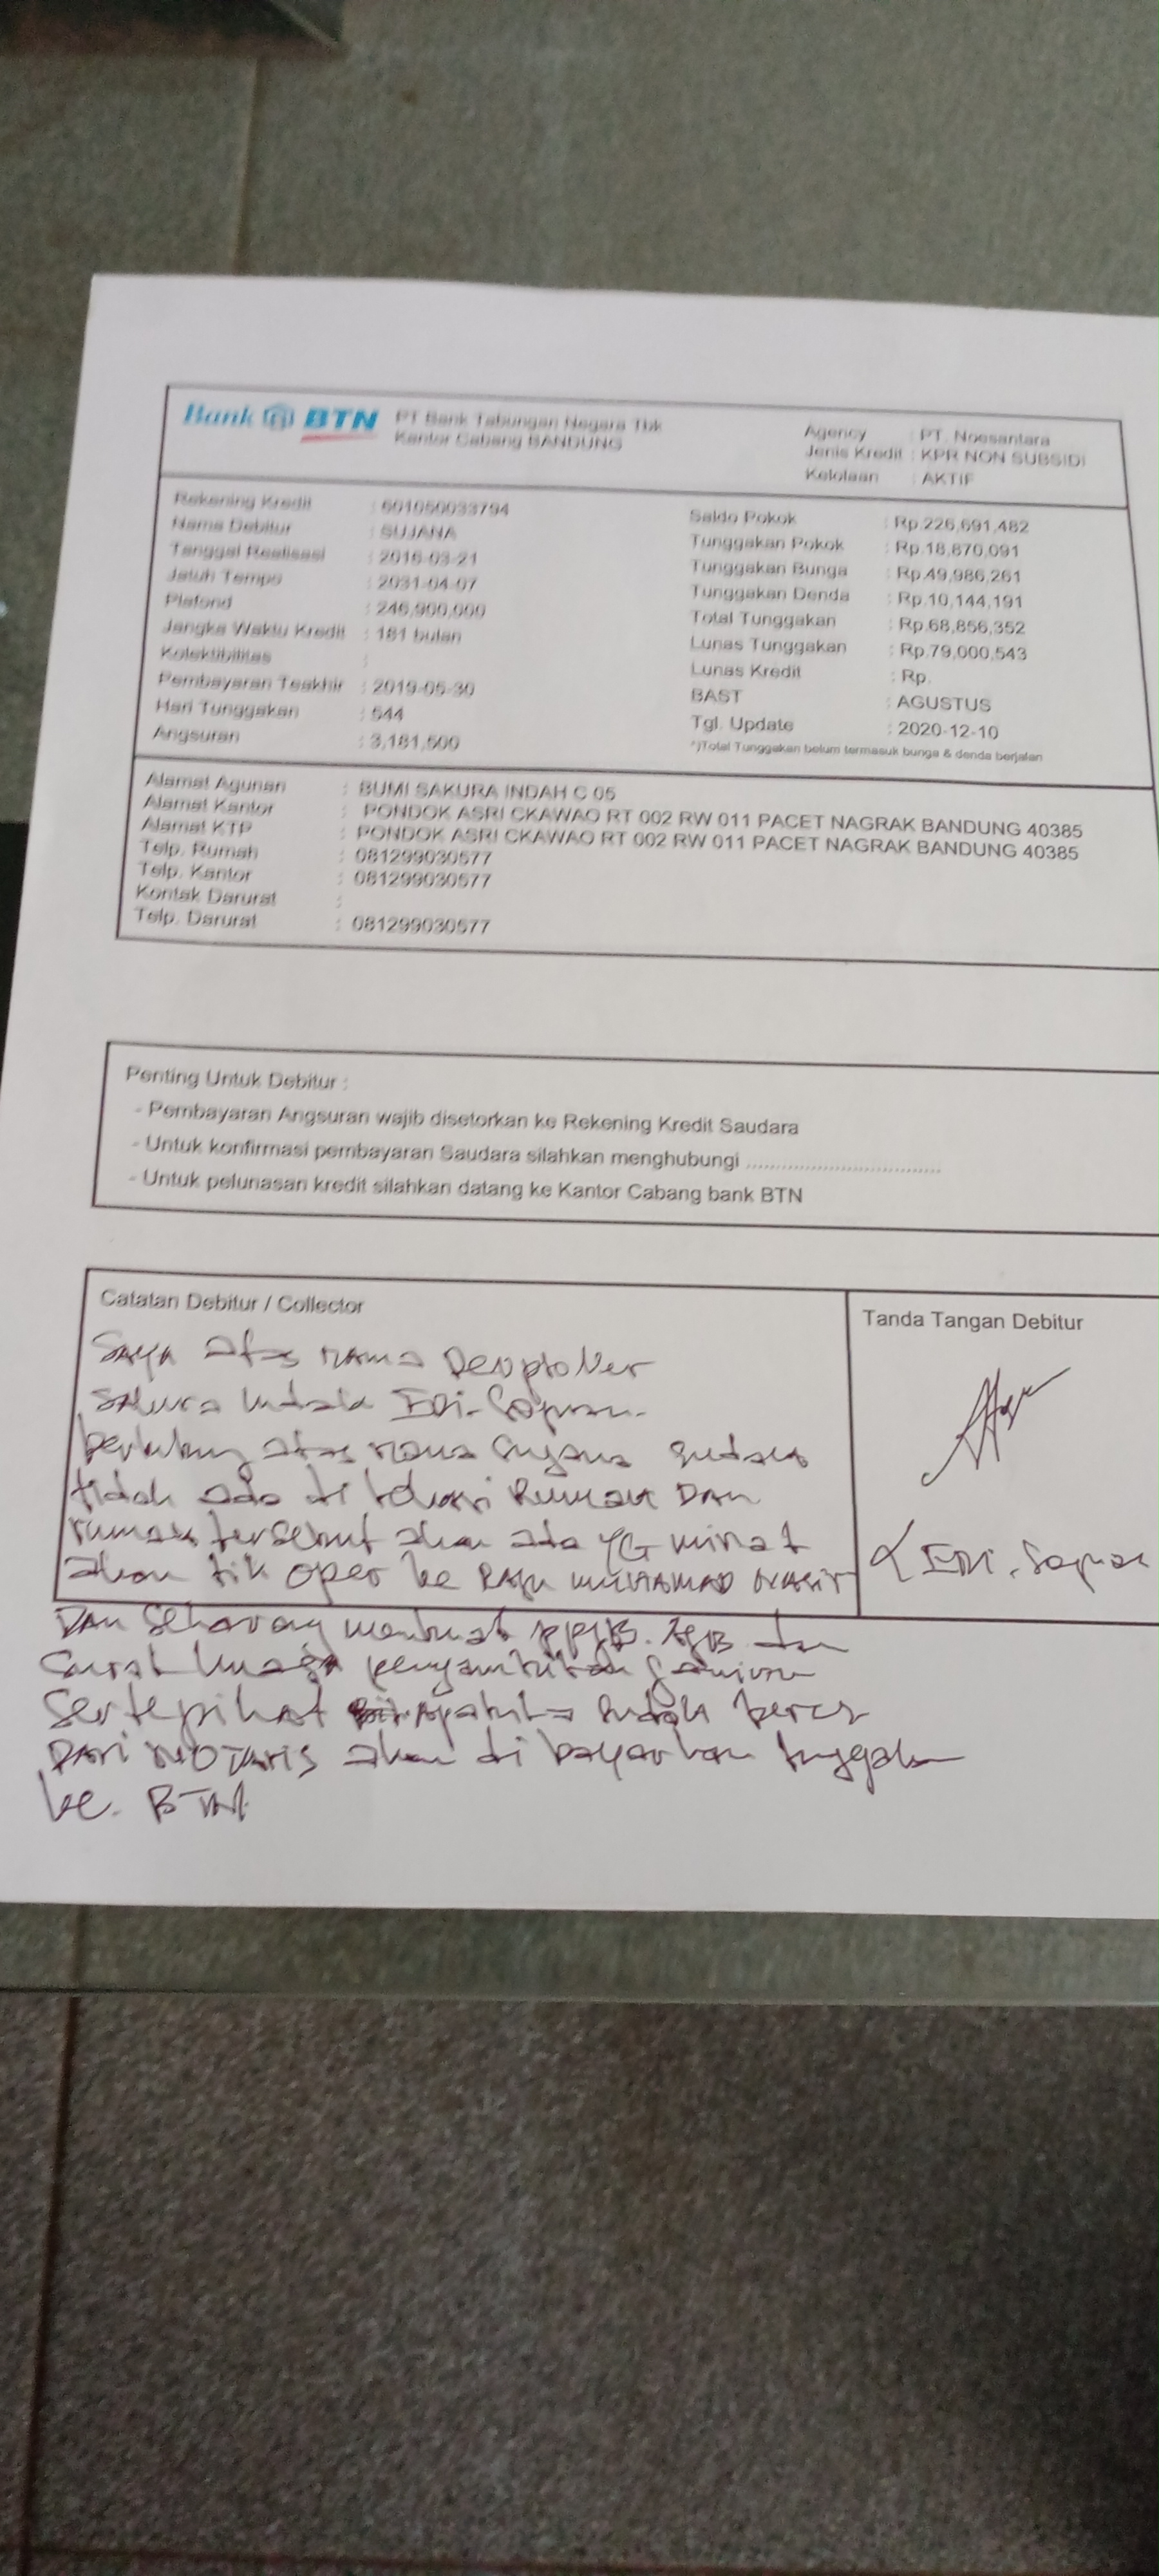 Bank BTN PT Bank Tabungan Negara Tbk
Kantor Cabang BANDUNG
Agency : PT. Noesantara
Jenis Kredit : KPR NON SUBSIDI
Kelolaan : AKTIF
Rekening Kredit : 601050033794
Nama Debitur : SUJANA
Tanggal Realisasi : 2016-03-21
Jatuh Tempo : 2031-04-07
Plafond : 246,900,000
Jangka Waktu Kredit : 181 bulan
Kolektibilitas :
Pembayaran Teakhir : 2019-05-30
Hari Tunggakan : 544
Angsuran : 3,181,500
Saldo Pokok : Rp.226,691,482
Tunggakan Pokok : Rp.18,870,091
Tunggakan Bunga : Rp.49,986,261
Tunggakan Denda : Rp.10,144,191
Total Tunggakan : Rp.68,856,352
Lunas Tunggakan : Rp.79,000,543
Lunas Kredit : Rp.
BAST : AGUSTUS
Tgl. Update : 2020-12-10
*)Total Tunggakan belum termasuk bunga & denda berjalan
Alamat Agunan : BUMI SAKURA INDAH C 05
Alamat Kantor : PONDOK ASRI CKAWAO RT 002 RW 011 PACET NAGRAK BANDUNG 40385
Alamat KTP : PONDOK ASRI CKAWAO RT 002 RW 011 PACET NAGRAK BANDUNG 40385
Telp. Rumah : 081299030577
Telp. Kantor : 081299030577
Kontak Darurat :
Telp. Darurat : 081299030577
Penting Untuk Debitur :
- Pembayaran Angsuran wajib disetorkan ke Rekening Kredit Saudara
- Untuk konfirmasi pembayaran Saudara silahkan menghubungi ..................................
- Untuk pelunasan kredit silahkan datang ke Kantor Cabang bank BTN
Catatan Debitur / Collector
Tanda Tangan Debitur
Saya atas nama
Sakura Indah EDi
atas nama sudah
tidak ada di lokasi Rumah DAN
rumah tersebut akan ada YG minat
akan oper ke MUHAMAD
DAN Sekarang membuat dan
Surat
sudah beres
DARI NOTARIS akan di bayarkan
ke. BTN
EDI.